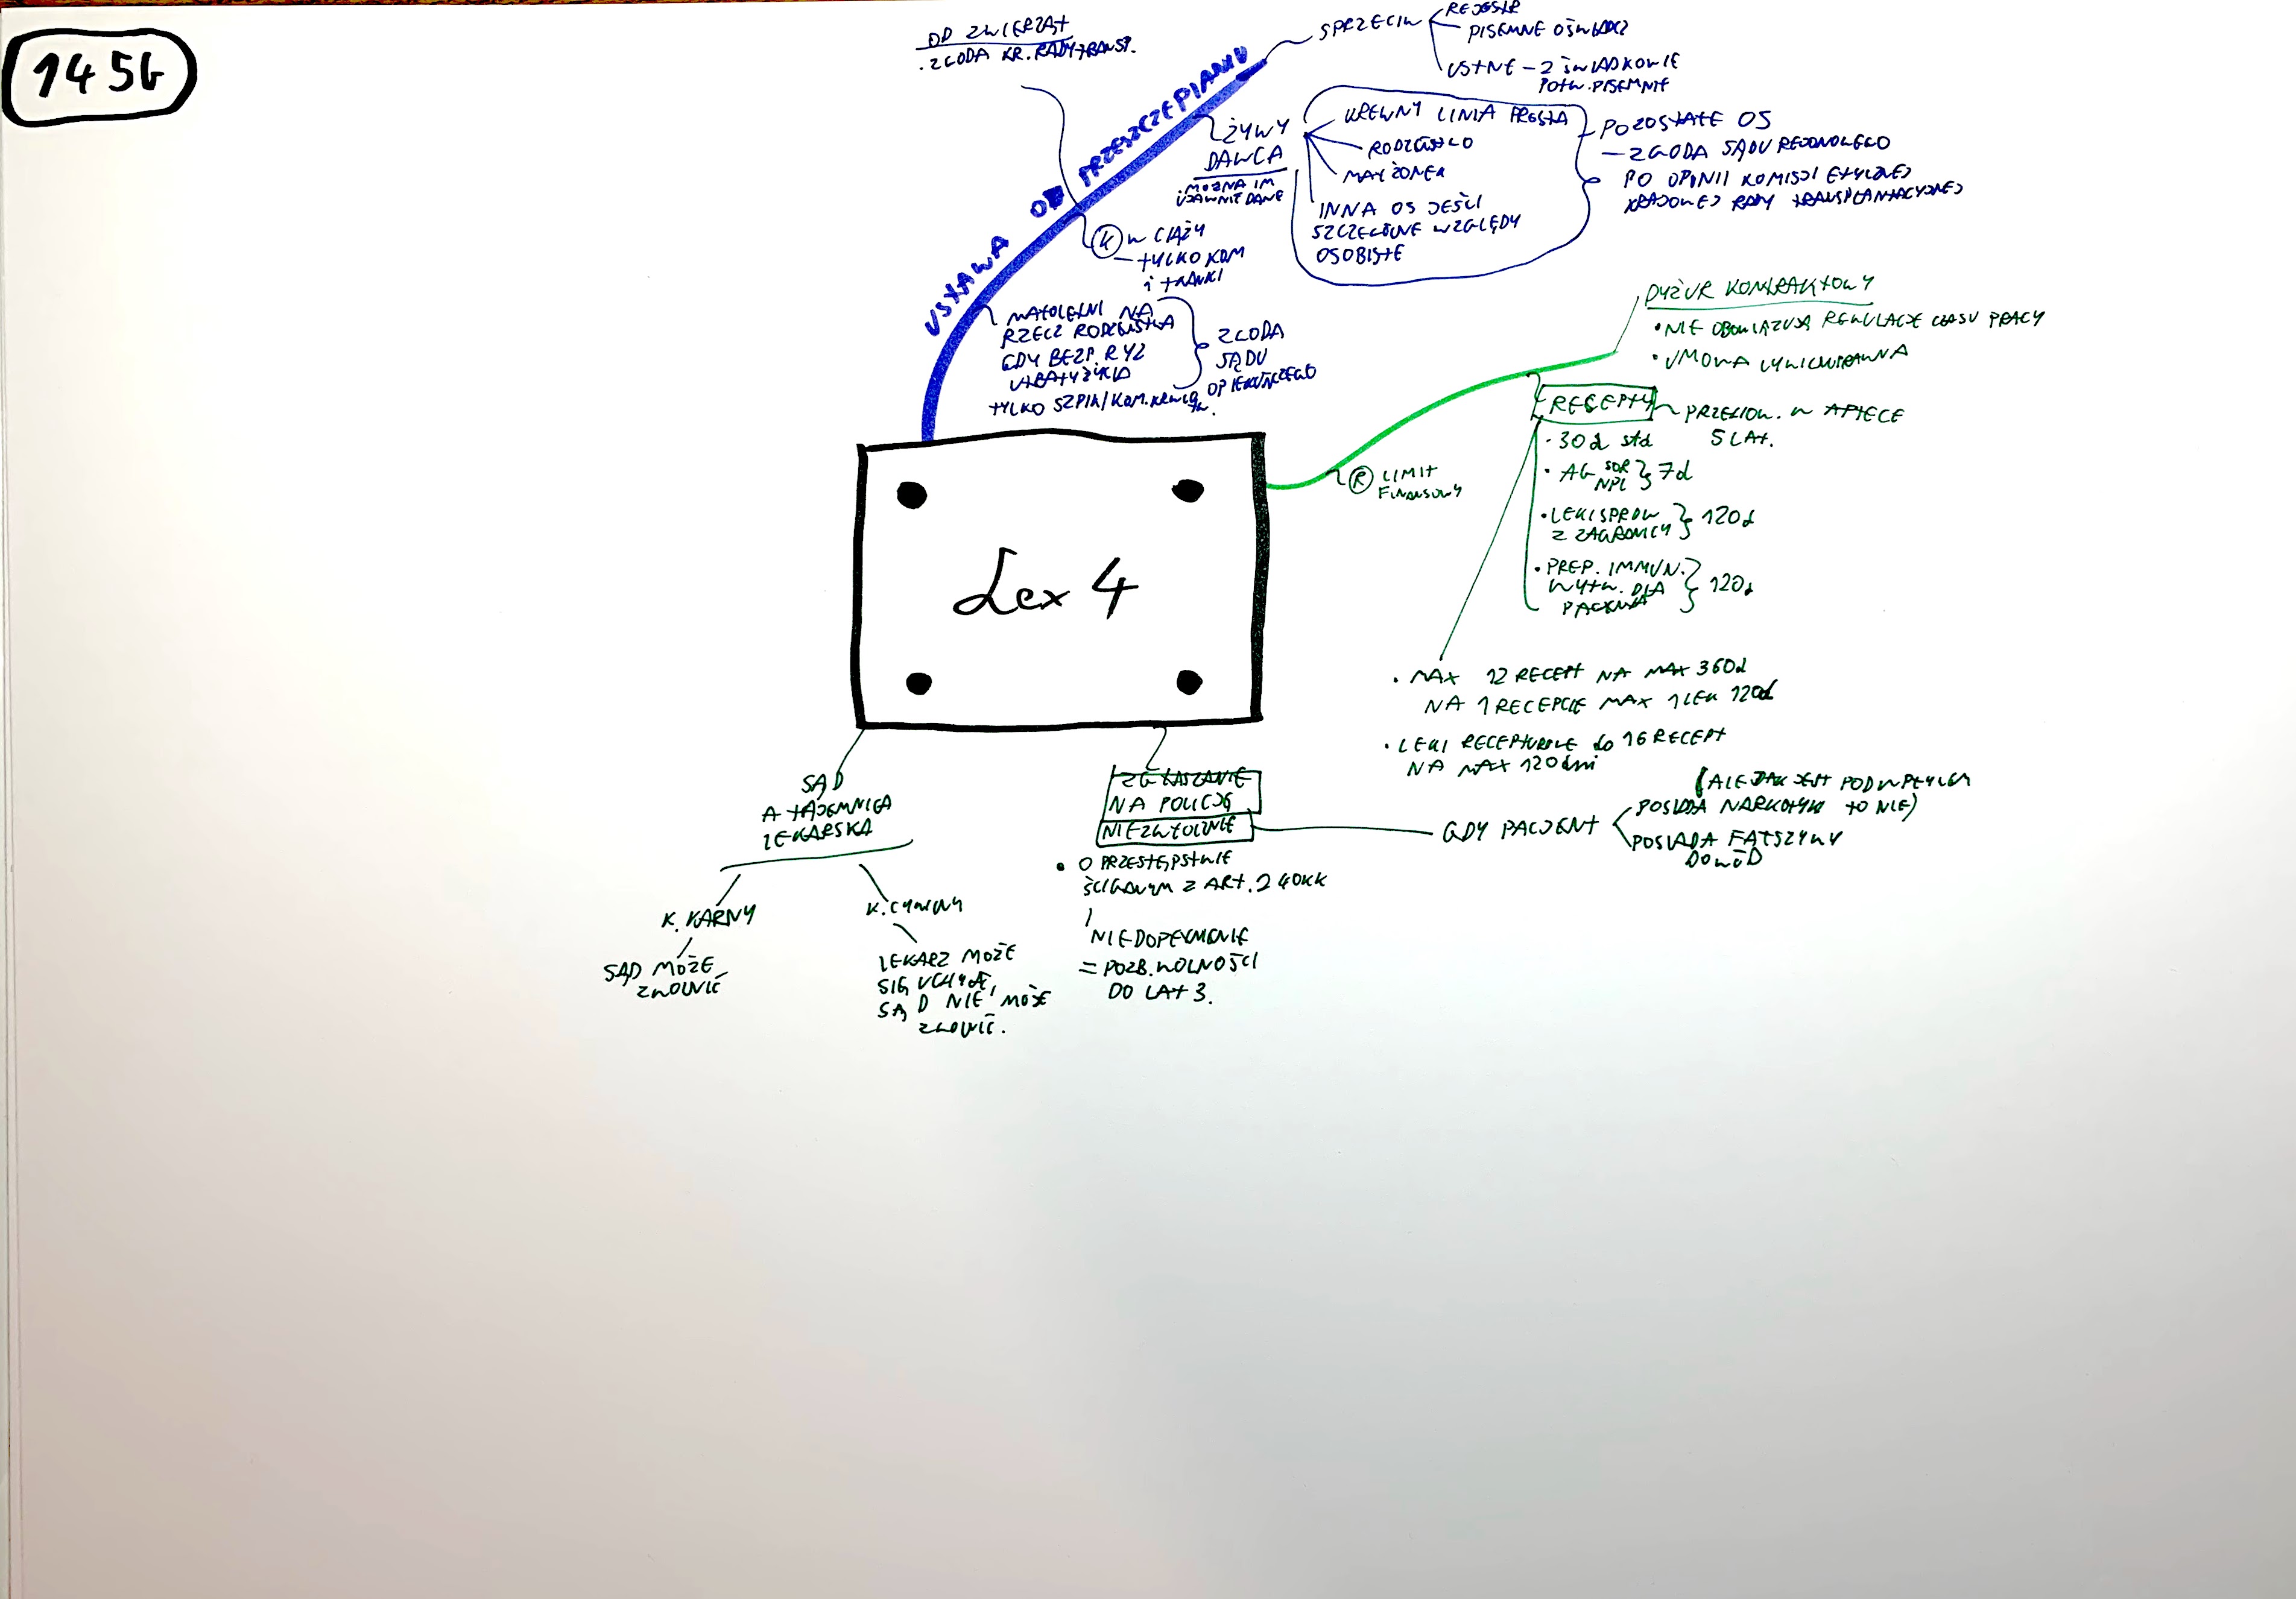 1456
OD ZWIERZĄT
. ZGODA KR. RADY TRANSP.
USTAWA OD PRZESZCZEPIANIU
SPRZECIW
REJESTR
PISEMNE OŚWIADCZ
USTNE - 2 ŚWIADKOWIE
POTW. PISEMNIE
ŻYWY
DAWCA
. MOŻNA IM
UJAWNIĆ DANE
KREWNY LINIA PROSTA
RODZEŃSTWO
MAŁŻONEK
INNA OS JEŚLI
SZCZEGÓLNE WZGLĘDY
OSOBISTE
POZOSTAŁE OS
- ZGODA SĄDU REJONOWEGO
PO OPINII KOMISJI ETYCZNEJ
KRAJOWEJ RADY TRANSPLANTACYJNEJ
K W CIĄŻY
- TYLKO KOM
i TKANKI
MAŁOLETNI NA
RZECZ RODZEŃSTWA
GDY BEZP. RYZ
UTRATY ŻYCIA
TYLKO SZPIK/KOM. KRWIOTW.
ZGODA
SĄDU
OPIEKUŃCZEGO
DYŻUR KONTRAKTOWY
• NIE OBOWIĄZUJĄ REGULACJE CZASU PRACY
• UMOWA CYWILNOPRAWNA
RECEPTY
PRZECHOW. W APTECE
5 LAT.
· 30d std
· AG SOR NPL } 7d
• LEKI SPROW
Z ZAGRANICY } 120d
• PREP. IMMUN.
WYTW. DLA
PACJENTA } 120d
R LIMIT
FINANSOWY
Lex 4
• MAX 12 RECEPT NA MAX 360d
NA 1 RECEPCIE MAX 1 LEK 120d
• LEKI RECEPTUROWE do 16 RECEPT
NA MAX 120 dni
SĄD
A TAJEMNICA
LEKARSKA
K. KARNY
SĄD MOŻE
ZWOLNIĆ
K. CYWILNY
LEKARZ MOŻE
SIĘ UCHYLIĆ,
SĄD NIE MOŻE
ZWOLNIĆ.
ZGŁASZANIE
NA POLICJĘ
NIEZWŁOCZNIE
• O PRZESTĘPSTWIE
ŚCIGANYM Z ART. 240KK
NIEDOPEŁNIENIE
= POZB. WOLNOŚCI
DO LAT 3.
GDY PACJENT
(ALE JAK JEST POD WPŁYWEM
POSIADA NARKOTYKI TO NIE)
POSIADA FAŁSZYWY
DOWÓD